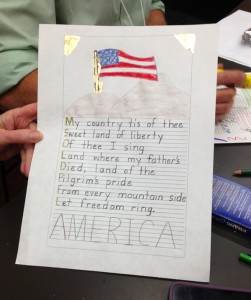 My country 'tis of thee
Sweet land of liberty
Of thee I sing
Land where my father's
Died, land of the
Pilgrim's pride
From every mountain side
Let freedom ring.
AMERICA